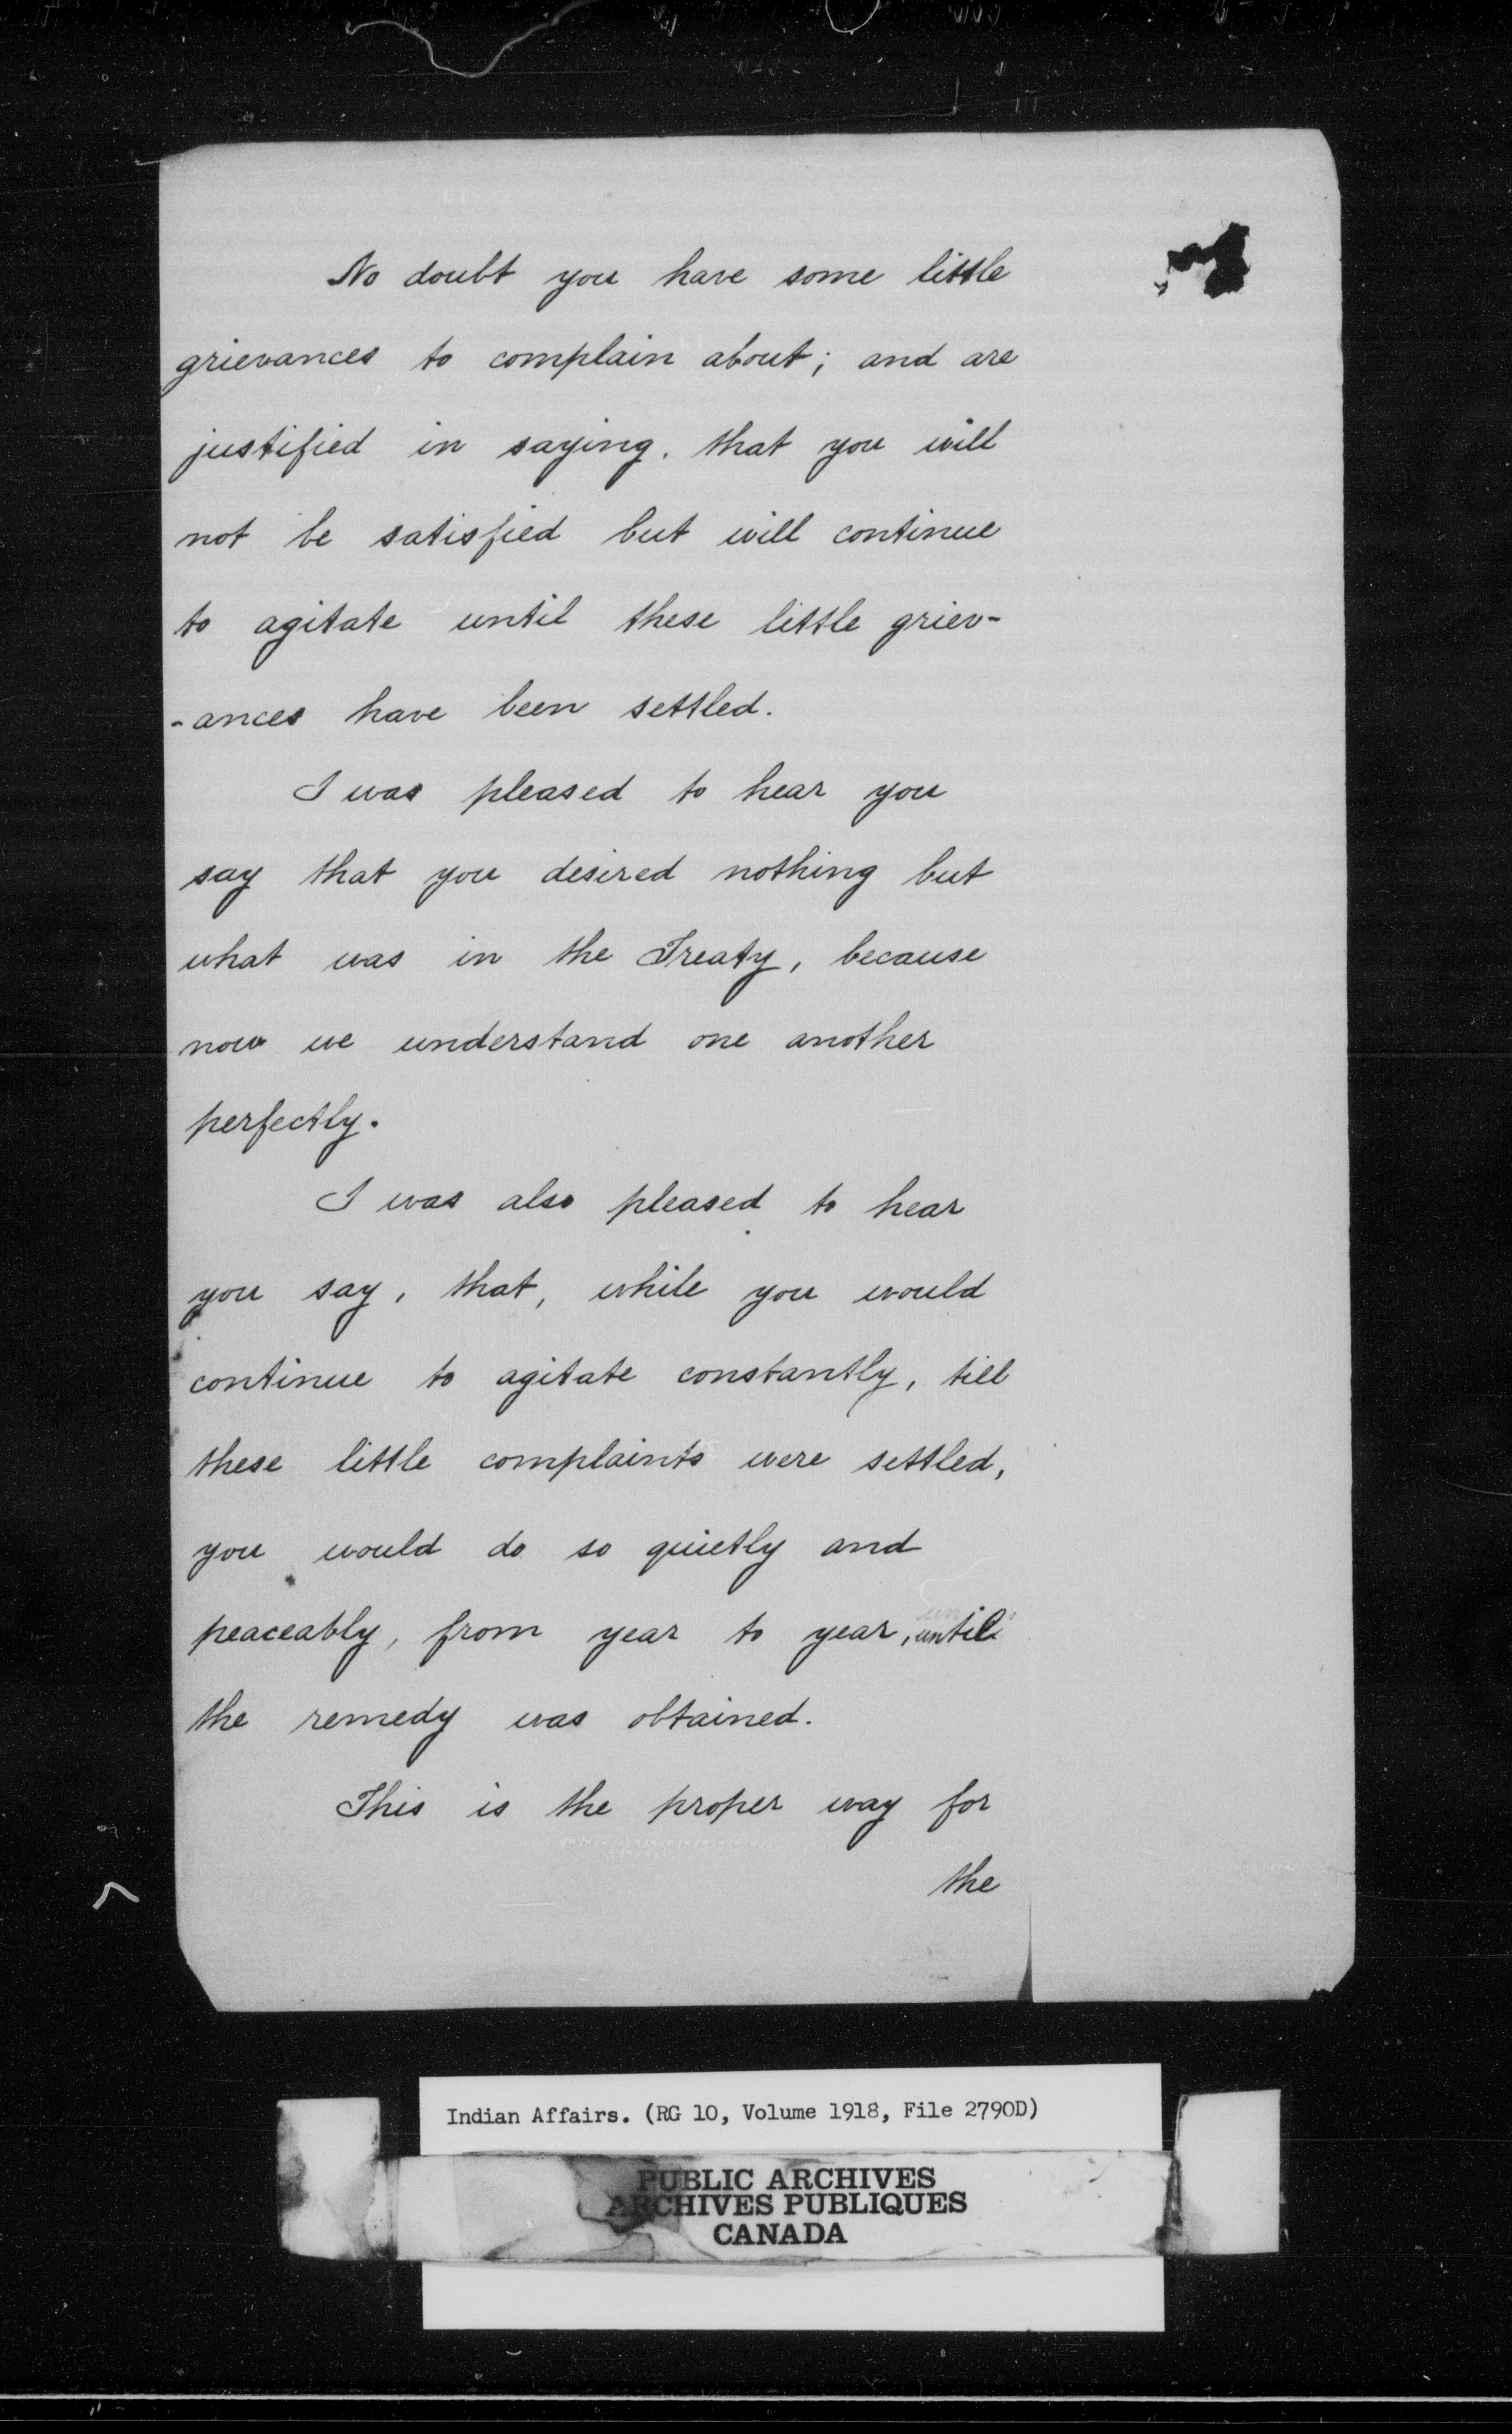 No doubt you have some little
grievances to complain about; and are
justified in saying, that you will
not be satisfied but will continue
to agitate until these little griev-
-ances have been settled.
I was pleased to hear you
say that you desired nothing but
what was in the Treaty, because
now we understand one another
perfectly.
I was also pleased to hear
you say, that, while you would
continue to agitate constantly, till
these little complaints were settled,
you would do so quietly and
peaceably, from year to year, until
the remedy was obtained.
This is the proper way for
the
Indian Affairs. (RG 10, Volume 1918, File 2790D)
PUBLIC ARCHIVES
ARCHIVES PUBLIQUES
CANADA